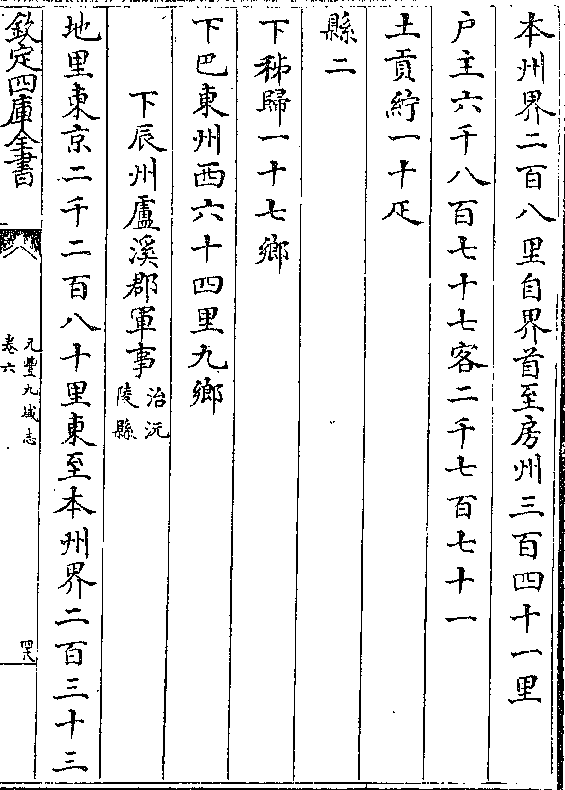 本州界二百八里自界首至房州三百四十一里
戶主六千八百七十七客二千七百七十一
土貢紵一十疋
縣二
下秭歸一十七鄉
下巴東州西六十四里九鄉
下辰州盧溪郡軍事治沅陵縣
地里東京二千二百八十里東至本州界二百三十三
欽定四庫全書
元豐九域志
卷六